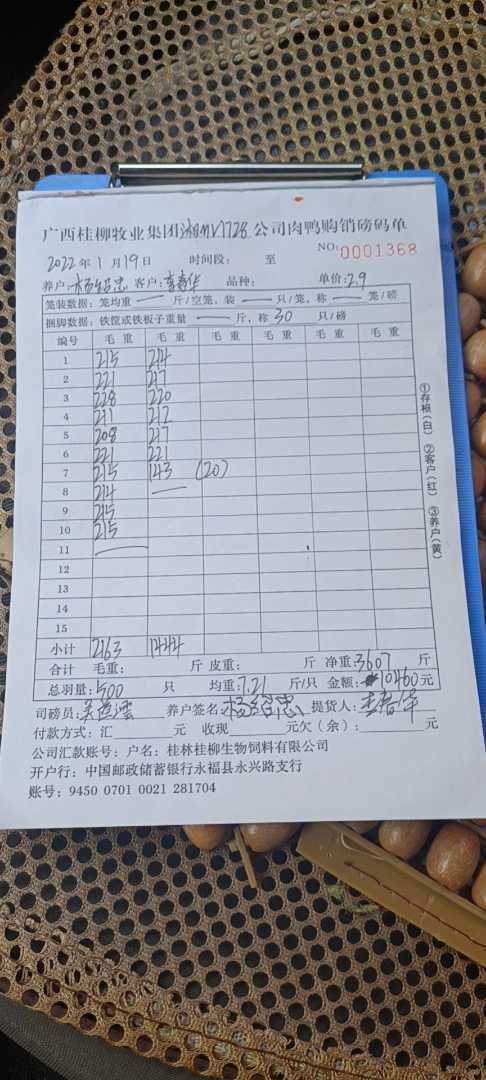 广西桂柳牧业集团湘GMV1728公司肉鸭购销磅码单
NO: 0001368
2022年1月19日 时间段: 至
养户: 杨绍忠 客户: 李春华 品种: 单价: 2.9
笼装数据: 笼均重 — 斤/空笼, 装 — 只/笼, 称 — 笼/磅
捆脚数据: 铁筐或铁板子重量 — 斤, 称 30 只/磅
编号 毛重 毛重 毛重 毛重 毛重 毛重
1 215 214
2 221 217
3 228 220
4 211 212
5 208 217
6 221 221
7 215 143 (20)
8 214 —
9 215
10 215
11 —
12
13
14
15
小计 2163 1444
合计 毛重: 斤 皮重: 斤 净重: 3607 斤
总羽量: 500 只 均重: 7.21 斤/只 金额: 10460元
司磅员: 养户签名: 杨绍忠 提货人: 李春华
付款方式: 汇 元 收现 元欠(余): 元
公司汇款账号: 户名: 桂林桂柳生物饲料有限公司
开户行: 中国邮政储蓄银行永福县永兴路支行
账号: 9450 0701 0021 281704
①存根(白) ②客户(红) ③养户(黄)